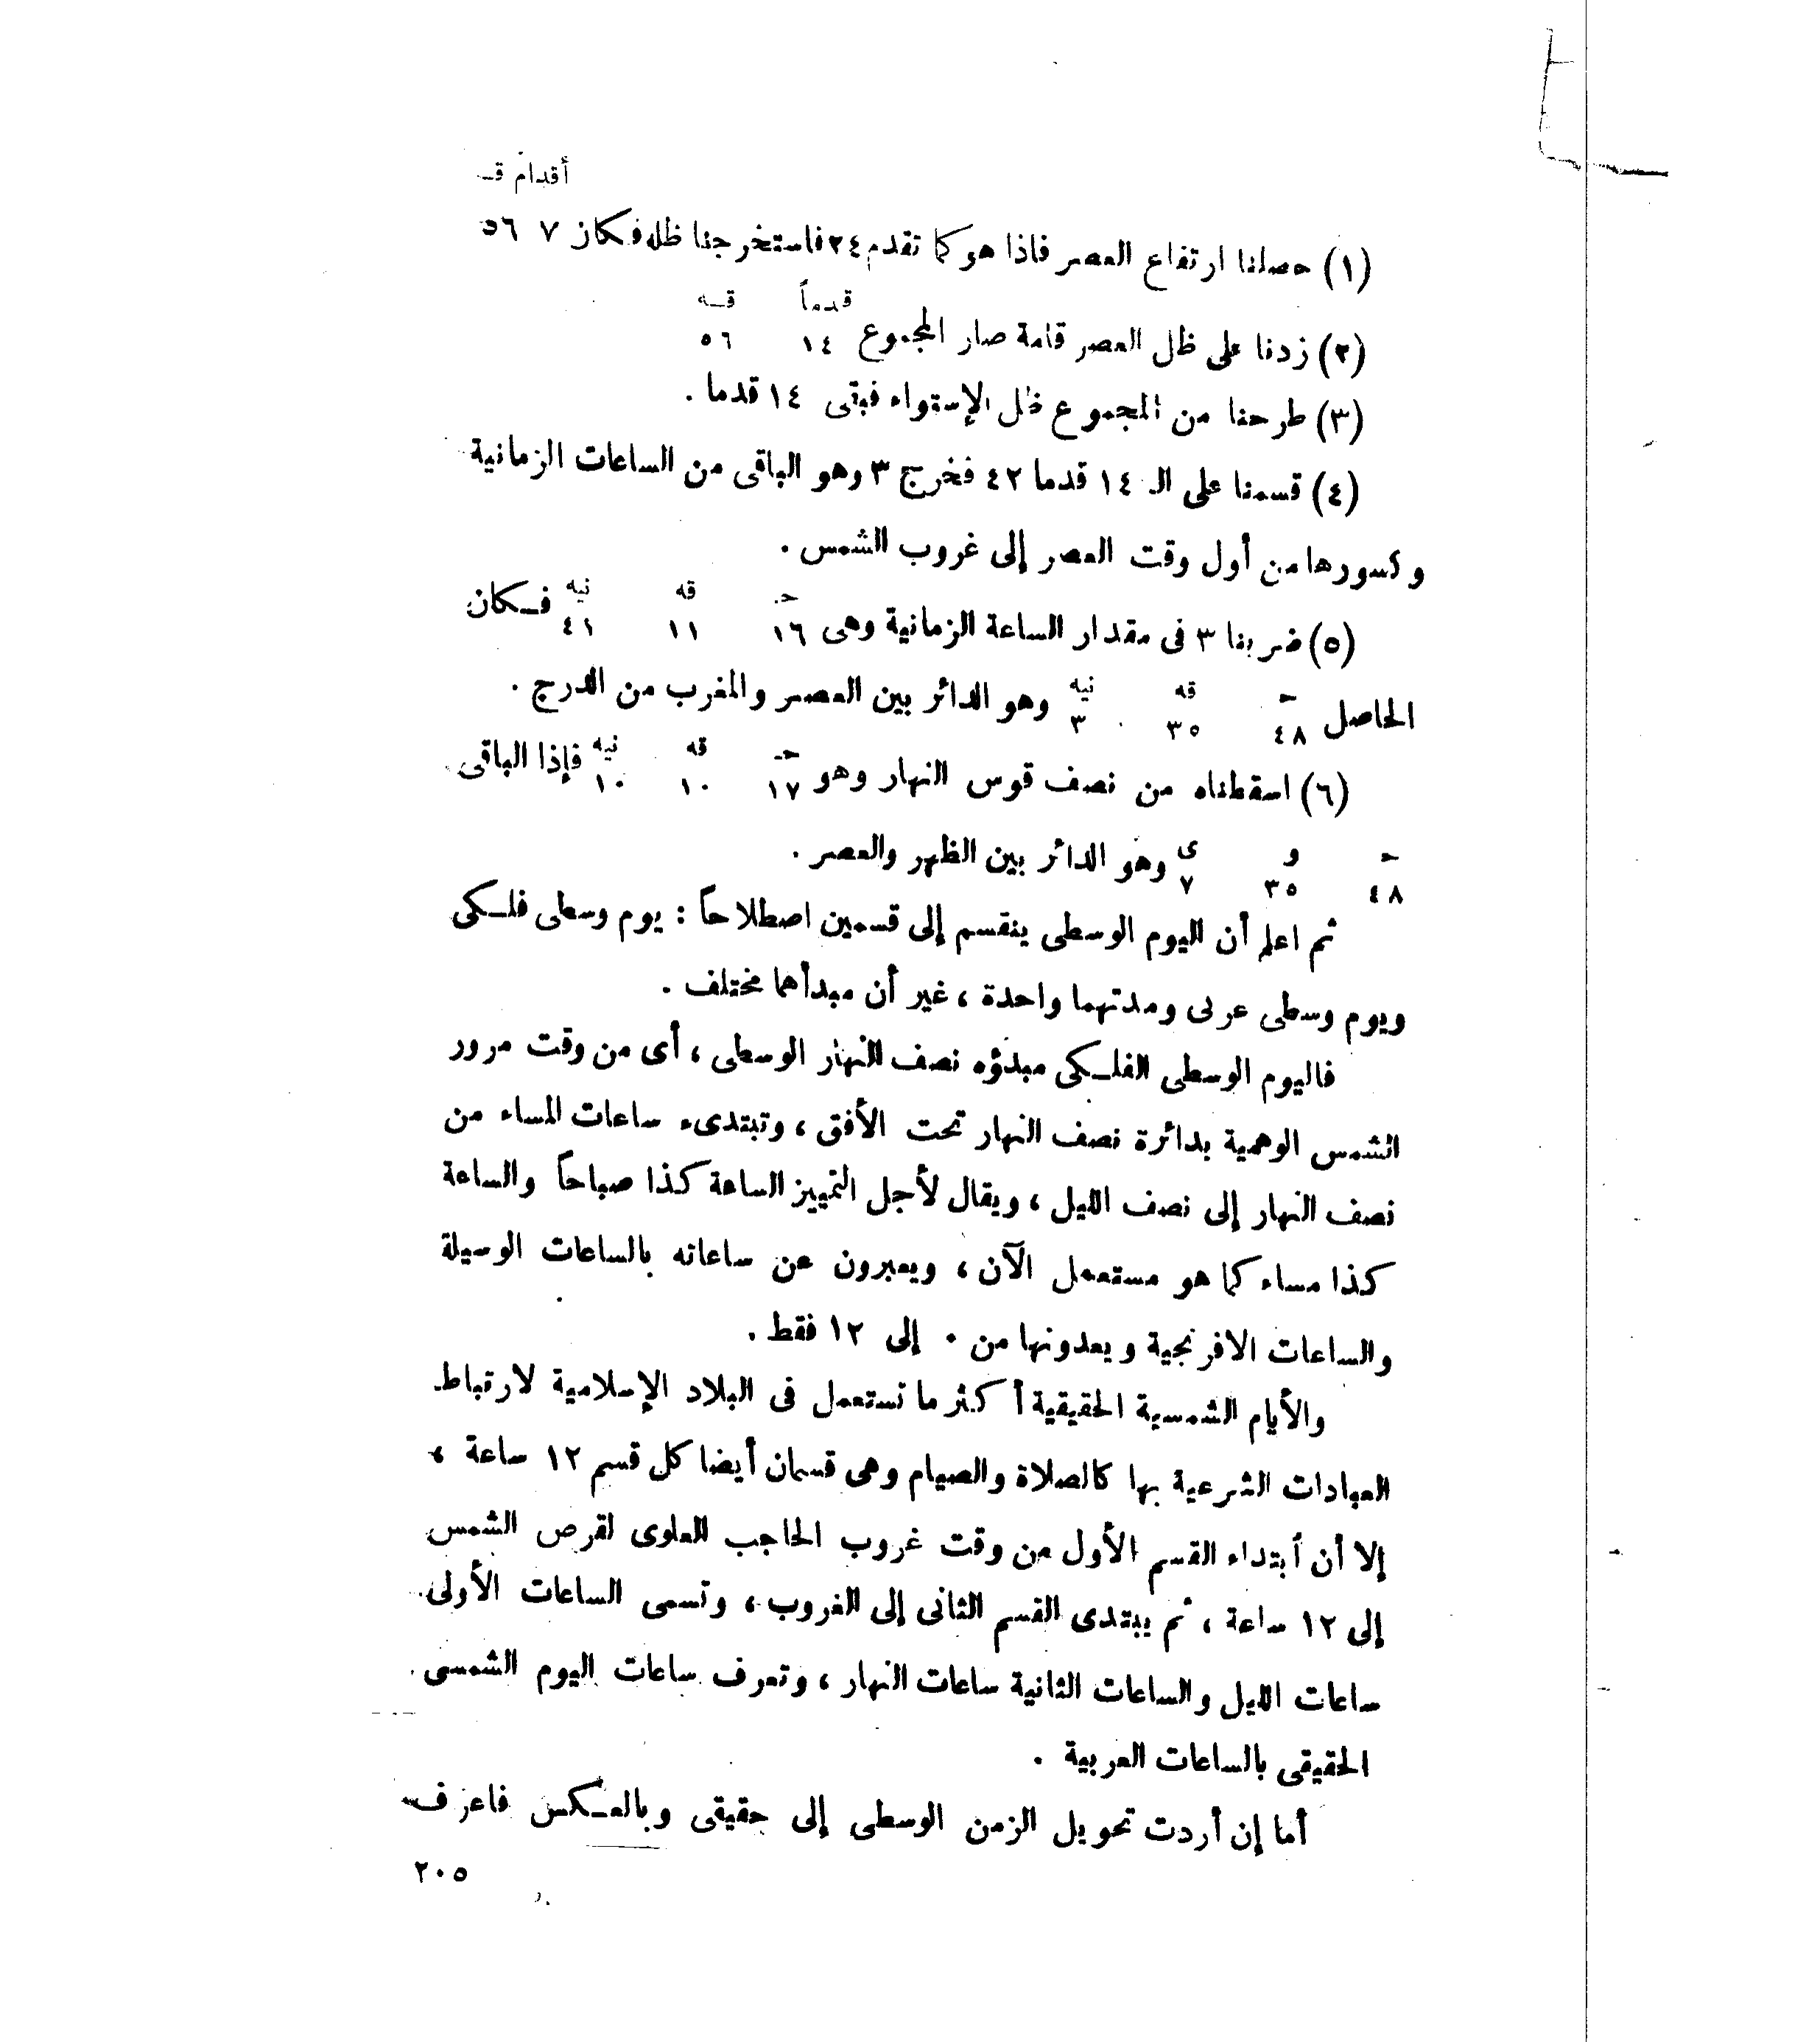 أقدام ق
(١) حصلنا ارتفاع العصر فاذا هو كما تقدم ٢٤ فاستخرجنا ظله فكان ٧ ٥٦
قدماً قه
(٢) زدنا على ظل العصر قامة صار المجموع ١٤ ٥٦
(٣) طرحنا من المجموع ظل الإستواء فبقى ١٤ قدما .
(٤) قسمنا على الـ ١٤ قدما ٤٢ فخرج ٣ وهو الباقى من الساعات الزمانية
وكسورها من أول وقت العصر إلى غروب الشمس .
حـ قه نيه
(٥) ضربنا ٣ فى مقدار الساعة الزمانية وهى ١٦ ١١ ٤١ فكان
حـ قه نيه
الحاصل ٤٨ ٣٥ ٣ وهو الدائر بين العصر والمغرب من الدرج .
حـ قه نيه
(٦) اسقطناه من نصف قوس النهار وهو ١٧ ١٠ ١٠ فإذا الباقى
حـ و ى
٤٨ ٣٥ ٧ وهو الدائر بين الظهر والعصر .
ثم اعلم أن اليوم الوسطى ينقسم إلى قسمين اصطلاحاً : يوم وسطى فلكى
ويوم وسطى عربى ومدتهما واحدة ، غير أن مبدأهما مختلف .
فاليوم الوسطى الفلكى مبدؤه نصف النهار الوسطى ، أى من وقت مرور
الشمس الوهمية بدائرة نصف النهار تحت الأفق ، وتبتدىء ساعات المساء من
نصف النهار إلى نصف الليل ، ويقال لأجل التمييز الساعة كذا صباحاً والساعة
كذا مساء كما هو مستعمل الآن ، ويعبرون عن ساعاته بالساعات الوسيلة
والساعات الافرنجية ويعدونها من ٠ إلى ١٢ فقط .
والأيام الشمسية الحقيقية أكثر ما تستعمل فى البلاد الإسلامية لارتباط
العبادات الشرعية بها كالصلاة والصيام وهى قسمان أيضا كل قسم ١٢ ساعة ،
إلا أن ابتداء القسم الأول من وقت غروب الحاجب العلوى لقرص الشمس
إلى ١٢ ساعة ، ثم يبتدى القسم الثانى إلى الغروب ، وتسمى الساعات الأولى
ساعات الليل والساعات الثانية ساعات النهار ، وتعرف ساعات اليوم الشمسى
الحقيقى بالساعات العربية .
أما إن أردت تحويل الزمن الوسطى إلى حقيقى وبالعكس فاعرف
٢٠٥